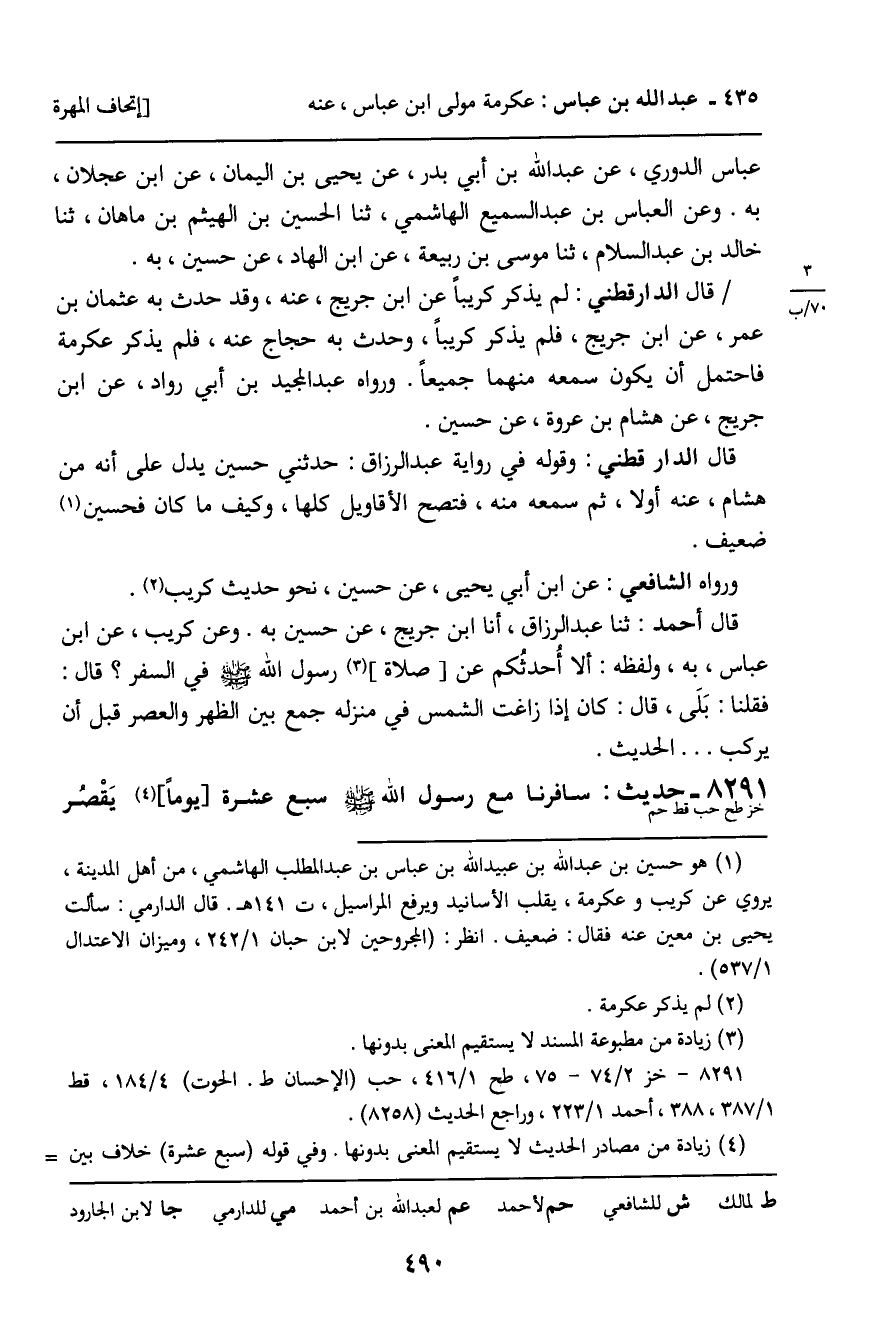 ٤٣٥ ـ عبدالله بن عباس : عكرمة مولى ابن عباس ، عنه [إتحاف المهرة
عباس الدوري ، عن عبدالله بن أبي بدر ، عن يحيى بن اليمان ، عن ابن عجلان ،
به . وعن العباس بن عبدالسميع الهاشمي ، ثنا الحسين بن الهيثم بن ماهان ، ثنا
خالد بن عبدالسلام ، ثنا موسى بن ربيعة ، عن ابن الهاد ، عن حسين ، به .
٣
٧٠/ب
/ قال الدارقطني : لم يذكر كريباً عن ابن جريج ، عنه ، وقد حدث به عثمان بن
عمر ، عن ابن جريج ، فلم يذكر كريباً ، وحدث به حجاج عنه ، فلم يذكر عكرمة
فاحتمل أن يكون سمعه منهما جميعاً . ورواه عبدالمجيد بن أبي رواد ، عن ابن
جريج ، عن هشام بن عروة ، عن حسين .
قال الدار قطني : وقوله في رواية عبدالرزاق : حدثني حسين يدل على أنه من
هشام ، عنه أولا ، ثم سمعه منه ، فتصح الأقاويل كلها ، وكيف ما كان فحسين(١)
ضعيف .
ورواه الشافعي : عن ابن أبي يحيى ، عن حسين ، نحو حديث كريب(٢) .
قال أحمد : ثنا عبدالرزاق ، أنا ابن جريج ، عن حسين به . وعن كريب ، عن ابن
عباس ، به ، ولفظه : ألا أُحدثُكم عن [ صلاة ](٣) رسول الله ﷺ في السفر ؟ قال :
فقلنا : بَلَى ، قال : كان إذا زاغت الشمس في منزله جمع بين الظهر والعصر قبل أن
يركب ... الحديث .
٨٢٩١ ـ حديث : سافرنا مع رسول الله ﷺ سبع عشرة [يوماً](٤) يَقْصُر
خز طح حب قط حم
(١) هو حسين بن عبدالله بن عبيدالله بن عباس بن عبدالمطلب الهاشمي ، من أهل المدينة ،
يروي عن كريب و عكرمة ، يقلب الأسانيد ويرفع المراسيل ، ت ١٤١هـ . قال الدارمي : سألت
يحيى بن معين عنه فقال : ضعيف . انظر : (المجروحين لابن حبان ٢٤٢/١ ، وميزان الاعتدال
٥٣٧/١) .
(٢) لم يذكر عكرمة .
(٣) زيادة من مطبوعة المسند لا يستقيم المعنى بدونها .
٨٢٩١ - خز ٧٤/٢ - ٧٥ ، طح ٤١٦/١ ، حب (الإحسان ط . الحوت) ١٨٤/٤ ، قط
٣٨٧/١ ، ٣٨٨ ، أحمد ٢٢٣/١ ، وراجع الحديث (٨٢٥٨) .
(٤) زيادة من مصادر الحديث لا يستقيم المعنى بدونها . وفي قوله (سبع عشرة) خلاف بين =
ط لمالك ش للشافعي حم لأحمد عم لعبدالله بن أحمد مي للدارمي جا لابن الجارود
٤٩٠